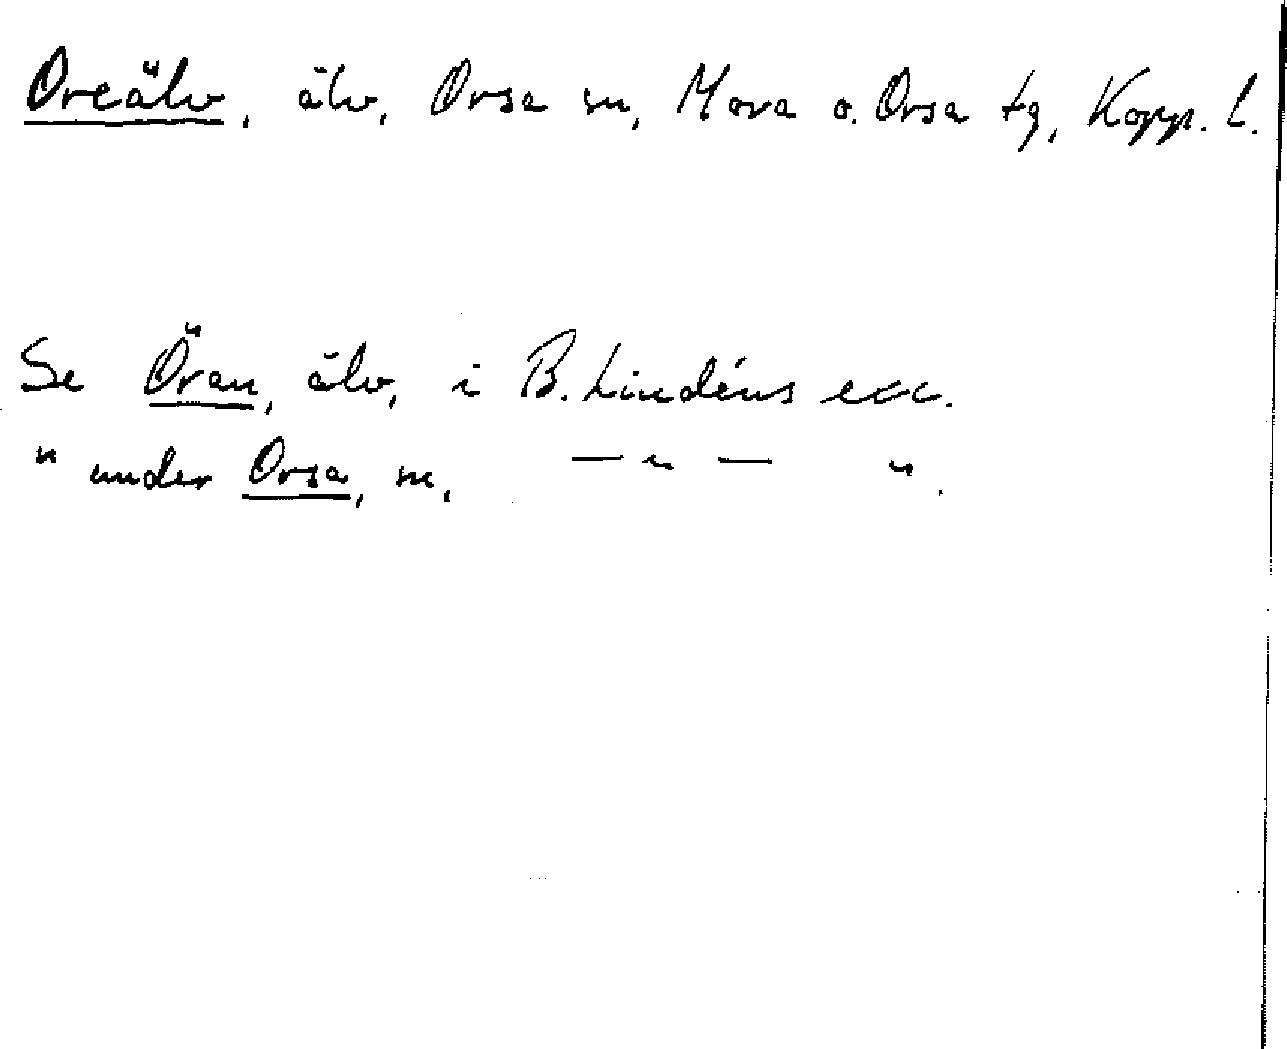 Oreälv, älv, Orsa sn, Mora o. Orsa tg, Kopp. l.
Se Öran, älv, i B. Lindéns exc.
" under Orsa, sn, — " — " .